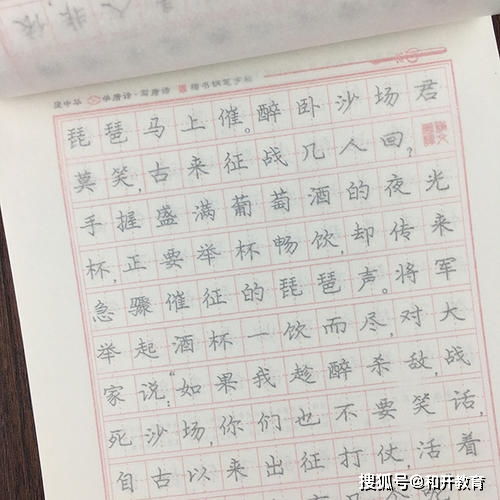 人非依
庞中华 学唐诗·写唐诗 楷书钢笔字帖
琵琶马上催。醉卧沙场君
莫笑,古来征战几人回?
手握盛满葡萄酒的夜光
杯,正要举杯畅饮,却传来
急骤催征的琵琶声。将军
举起酒杯一饮而尽,对大
家说:“如果我趁醉杀敌,战
死沙场,你们也不要笑话,
自古以来出征打仗活着
搜狐号@和开教育